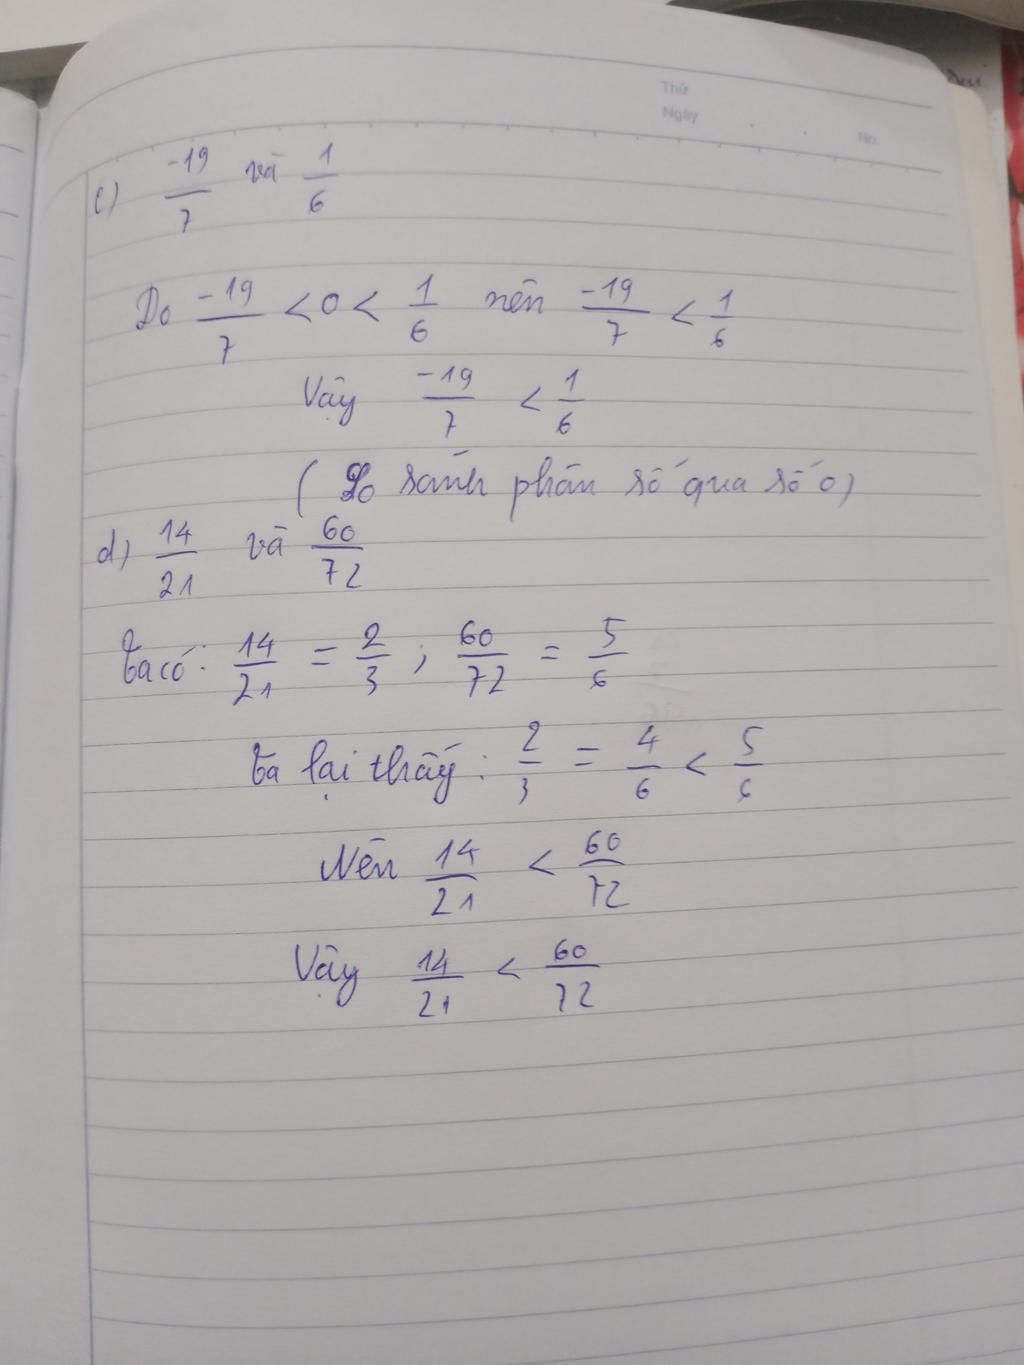 Thứ
Ngày
No.
c) -19/7 và 1/6
Do -19/7 < 0 < 1/6 nên -19/7 < 1/6
Vậy -19/7 < 1/6
( So sánh phân số qua số 0)
d) 14/21 và 60/72
Ta có: 14/21 = 2/3 ; 60/72 = 5/6
Ta lại thấy : 2/3 = 4/6 < 5/6
Nên 14/21 < 60/72
Vậy 14/21 < 60/72